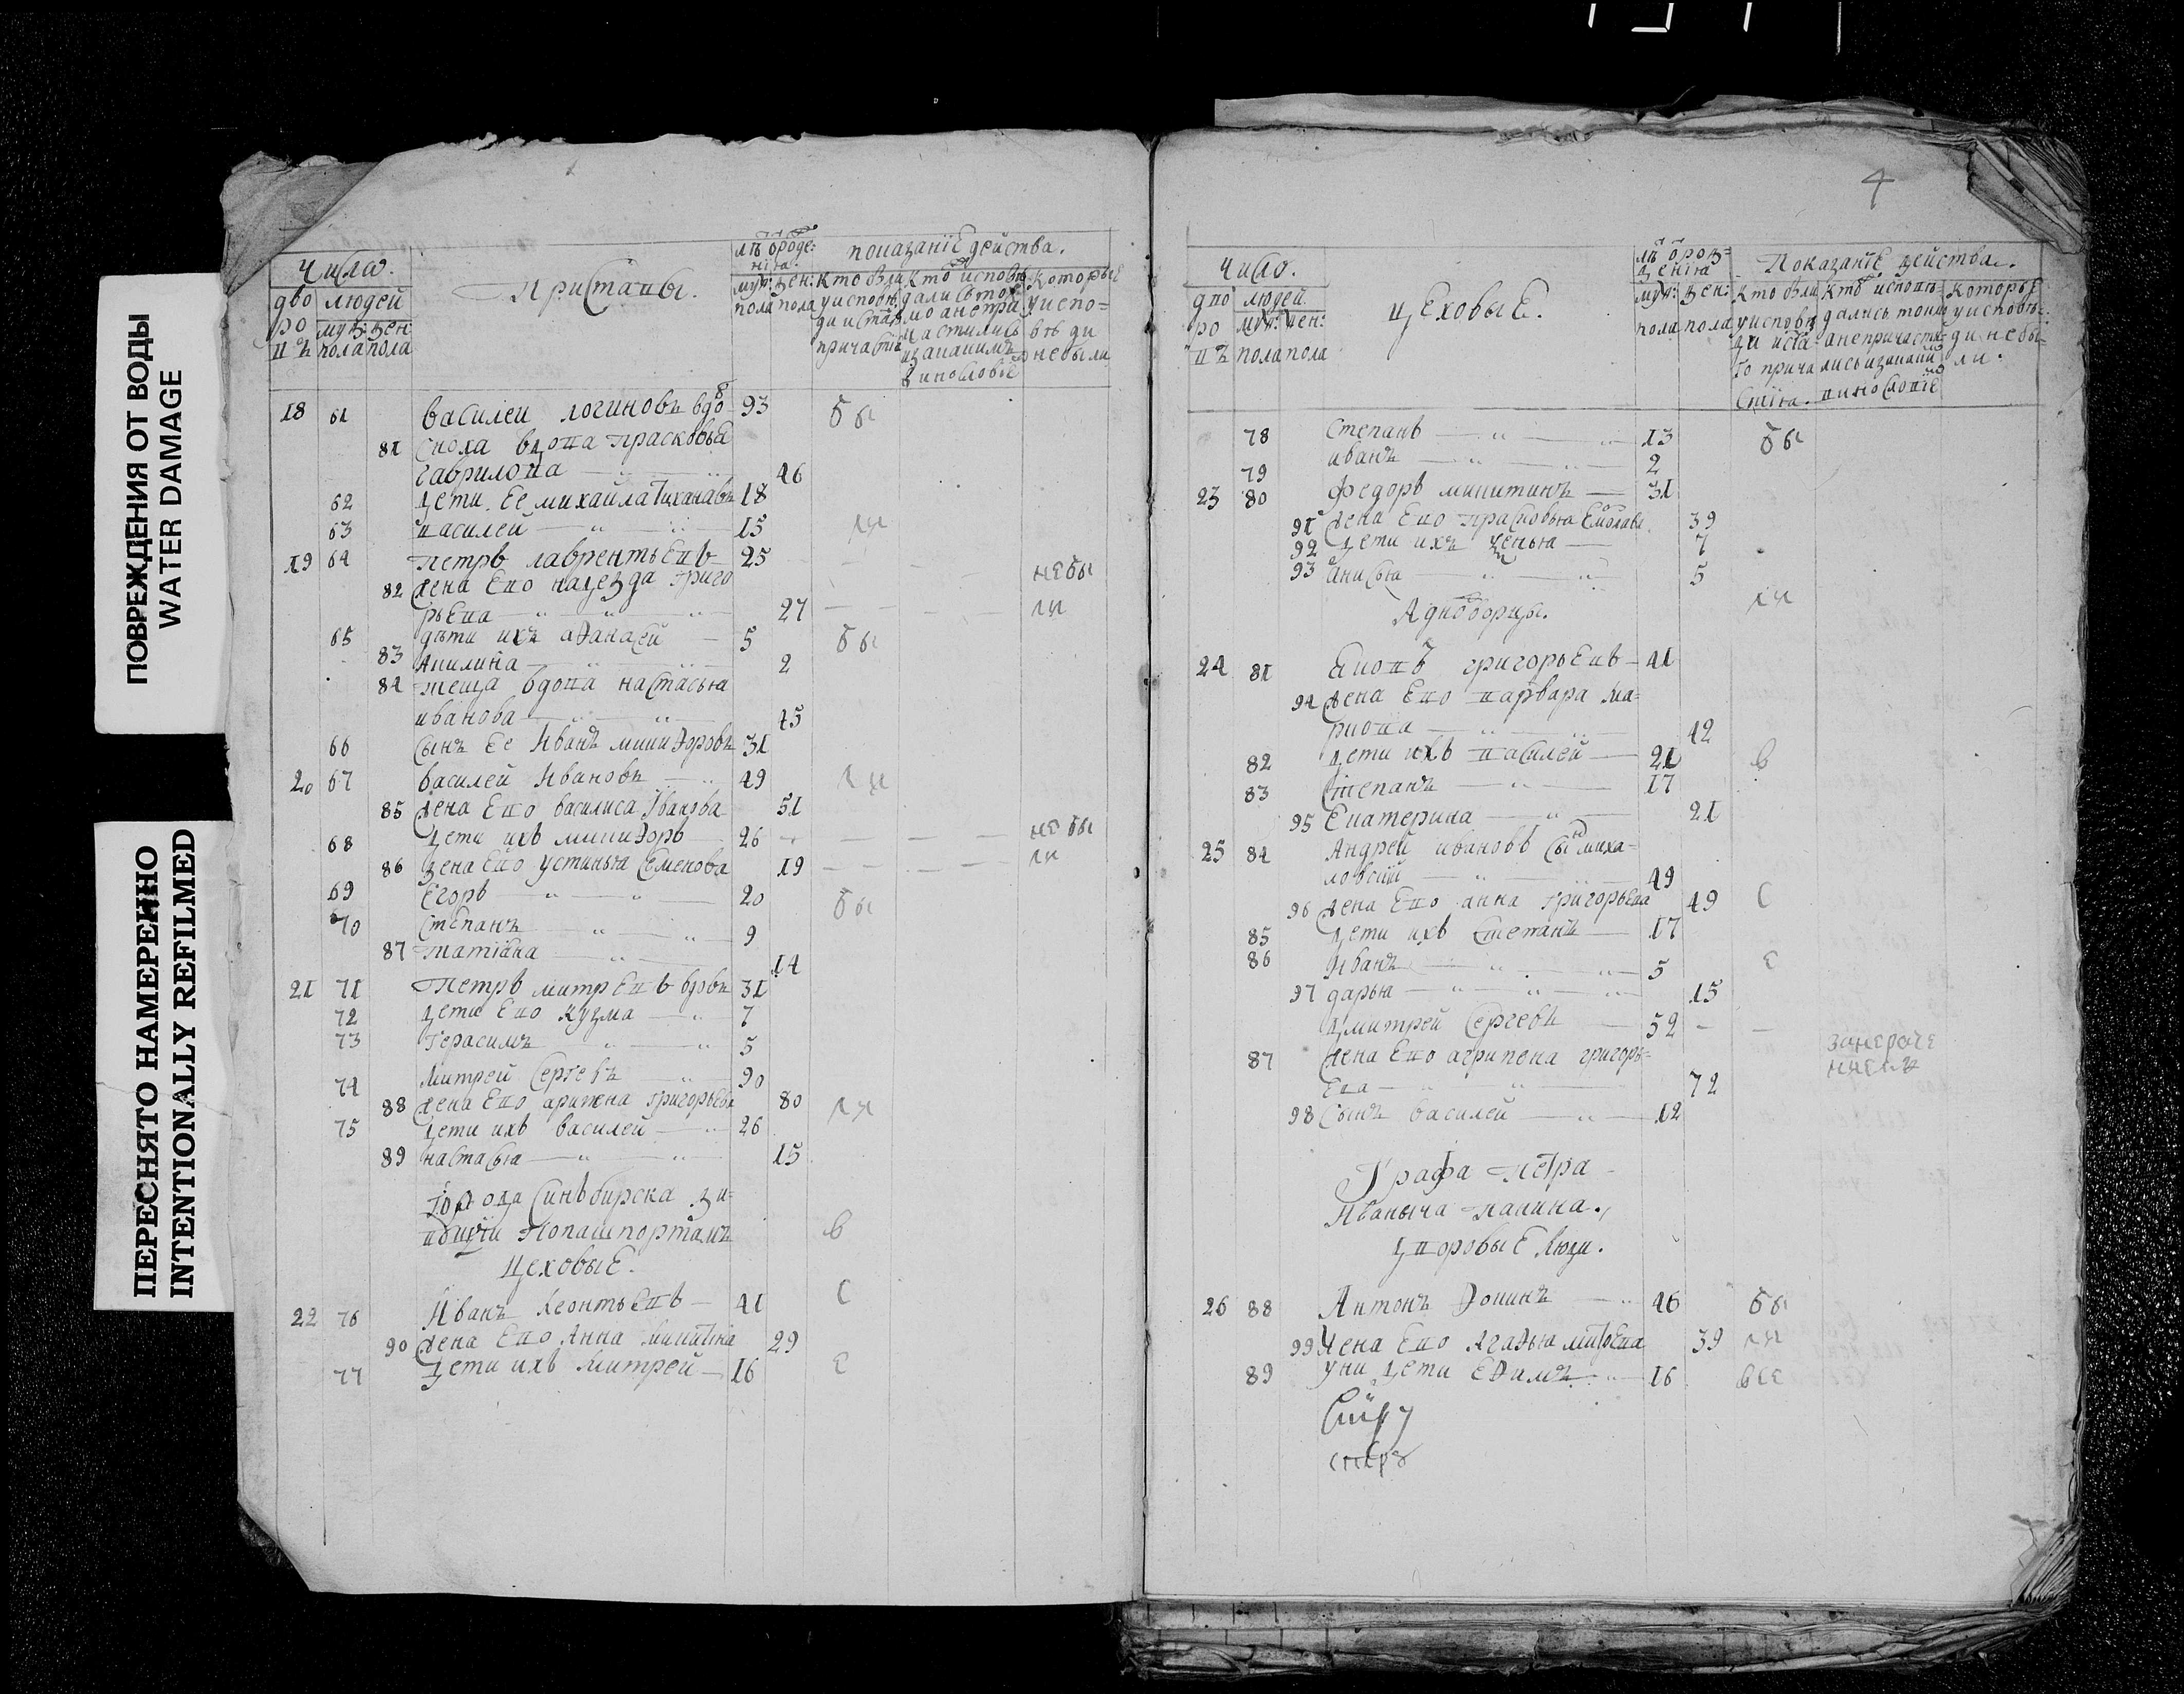 ПОВРЕЖДЕНИЯ ОТ ВОДЫ
WATER DAMAGE
ПЕРЕСНЯТО НАМЕРЕННО
INTENTIONALLY REFILMED
число.
дво ро въ
людей
муж: пола
жен: пола
Приставы.
лѣ ѿ роде: нїѧ.
муж: пола
жен: пола
показанїе действа.
кто были у исповѣди и ста причастїѧ
кто исповѣдались то
и за какимъ винословїе
которые у исповѣди не были
18 61 василеи логиновъ вдо 93 бы
81 сноха вдова прасковьѧ
гаврилова 46
62 дети ее михайла 18
63 василей 15 ли
19 64 петръ лаврентьевъ 25
82 жена ево надежда григо небы
рьева 27 ли
65 дѣти ихъ аѳанасей 5 бы
83 Акилина 2
84 теща вдова настасьѧ
иванова 45
66 сынъ ее Иванъ никиѳоровъ 31
20 67 василей Ивановъ 49 ли
85 жена ево василиса Иванова 51
68 дети ихъ никиѳоръ 26 не бы
86 жена ево устиньѧ семенова 19 ли
69 Егоръ 20 бы
70 степанъ 9
87 татїана 14
21 71 Петръ митревъ вдовъ 31
72 дети ево кузма 7
73 Герасимъ 5
74 митрей сергевъ 90
88 жена ево григорьева 80 ли
75 дети ихъ василей 26
89 настасьѧ 15
города синьбирска жи
вущи по пашпортамъ в
Цеховые.
22 76 Иванъ Леонтьевъ 41 с
90 жена ево Анна никитина 29
77 дети ихъ митрей 16 е
4
число.
дво ро въ
людей
муж: пола
жен: пола
цеховые.
лѣ ѿ рож= денїѧ
муж: пола
жен: пола
Показанїе действа.
кто были у исповѣди и ста го причастїѧ.
кто исповѣдались токмо а не причастились и за каким винословїе
которые у исповѣди не были.
78 степанъ 13 бы
79 иванъ 2
23 80 ѳедоръ никитинъ 31
91 жена ево прасковьѧ 39
92 дети ихъ 7
93 анисьѧ 5
Аднодорцы. ли
24 81 григорьевъ 41
94 жена ево варвара ма=
ркова 42
82 дети ихъ василей 21 в
83 степанъ 17
95 Екатерина 21
25 84 Андрей ивановъ сынъ миха=
ловский 49
96 жена ево анна григорьева 49 с
85 дети ихъ степанъ 17
86 Иванъ 5 е
97 дарьѧ 15
Дмитрей сергевъ 52
87 жена ево агрипена григорь=
ева 72
98 сынъ василей 12
Графа Петра
Иваныча панина.
дворовые люди.
26 88 Антонъ ѳокинъ 46 бы
99 жена ево Агаѳьѧ митрева 39 ли
89 у ни дети еѳимъ 16 все